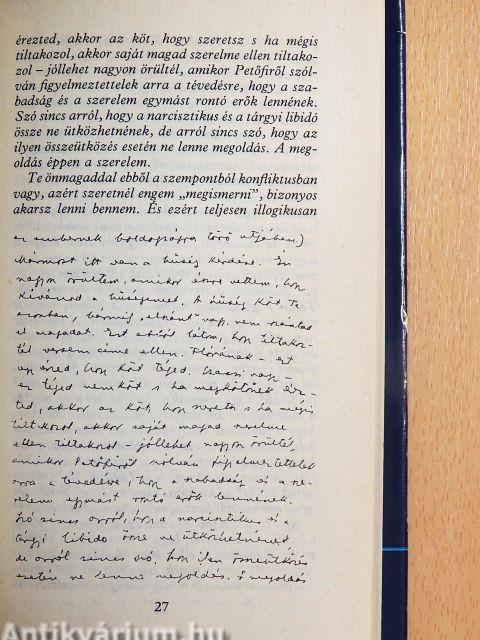 érezted, akkor az köt, hogy szeretsz s ha mégis
tiltakozol, akkor saját magad szerelme ellen tiltako-
zol – jóllehet nagyon örültél, amikor Petőfiről szól-
ván figyelmeztettelek arra a tévedésre, hogy a sza-
badság és a szerelem egymást rontó erők lennének.
Szó sincs arról, hogy a narcisztikus és a tárgyi libidó
össze ne ütközhetnének, de arról sincs szó, hogy az
ilyen összeütközés esetén ne lenne megoldás. A meg-
oldás éppen a szerelem.
Te önmagaddal ebből a szempontból konfliktusban
vagy, azért szeretnél engem „megismerni", bizonyos
akarsz lenni bennem. És ezért teljesen illogikusan
az embernek boldogságra törő útjában.)
Mármost itt van a hűség kérdése. Én
nagyon örültem, amikor észre vettem, hogy
kívánod a hűségemet. A hűség köt. Te
azonban, bármily „elszánt" vagy, nem szántad
el magadat. Ezt abból látom, hogy tiltakoz-
tál versem címe ellen. Flórának – ezt
úgy érzed, hogy köt téged.
ez téged nem köt s ha megkötőnek érez-
ted, akkor az köt, hogy szeretsz s ha mégis
tiltakozol, akkor saját magad szerelme
ellen tiltakozol – jóllehet nagyon örültél,
amikor Petőfiről szólván figyelmeztettelek
arra a tévedésre, hogy a szabadság és a sze-
relem egymást rontó erők lennének.
Szó sincs arról, hogy a narcisztikus és a
tárgyi libido össze ne ütközhetnének
de arról sincs szó, hogy ilyen összeütközés
esetén ne lenne megoldás. A megoldás
27
Antikvárium.hu